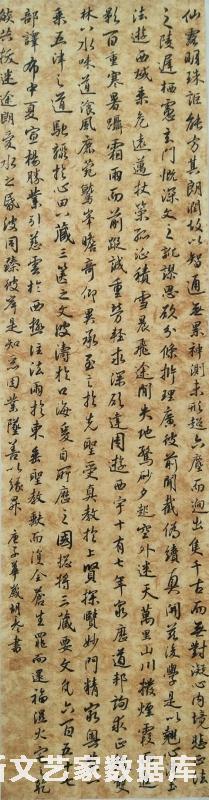 仙露明珠詎能方其朗潤故以智通無累神測未形超六塵而迥出隻千古而無對凝心內境悲正法
之陵遲棲慮玄門慨深文之訛謬思欲分條析理廣彼前聞截偽續真開茲後學是以翹心淨土
法遊西域乘危遠邁杖策孤征積雪晨飛途間失地驚砂夕起空外迷天萬里山川撥煙霞而進
影百重寒暑躡霜雨而前蹤誠重勞輕求深願達周遊西宇十有七年窮歷道邦詢求正教雙
林八水味道湌風鹿菀鷲峯瞻奇仰異承至言於先聖受真教於上賢探賾妙門精窮奧業一
乘五律之道馳驟於心田八藏三篋之文波濤於口海爰自所歷之國總將三藏要文凡六百五十七
部譯布中夏宣揚勝業引慈雲於西極注法雨於東垂聖教缺而復全蒼生罪而還福濕火宅之乾
焰共拔迷途朗愛水之昏波同臻彼岸是知惡因業墜善以緣昇
庚子年
文艺家数据库